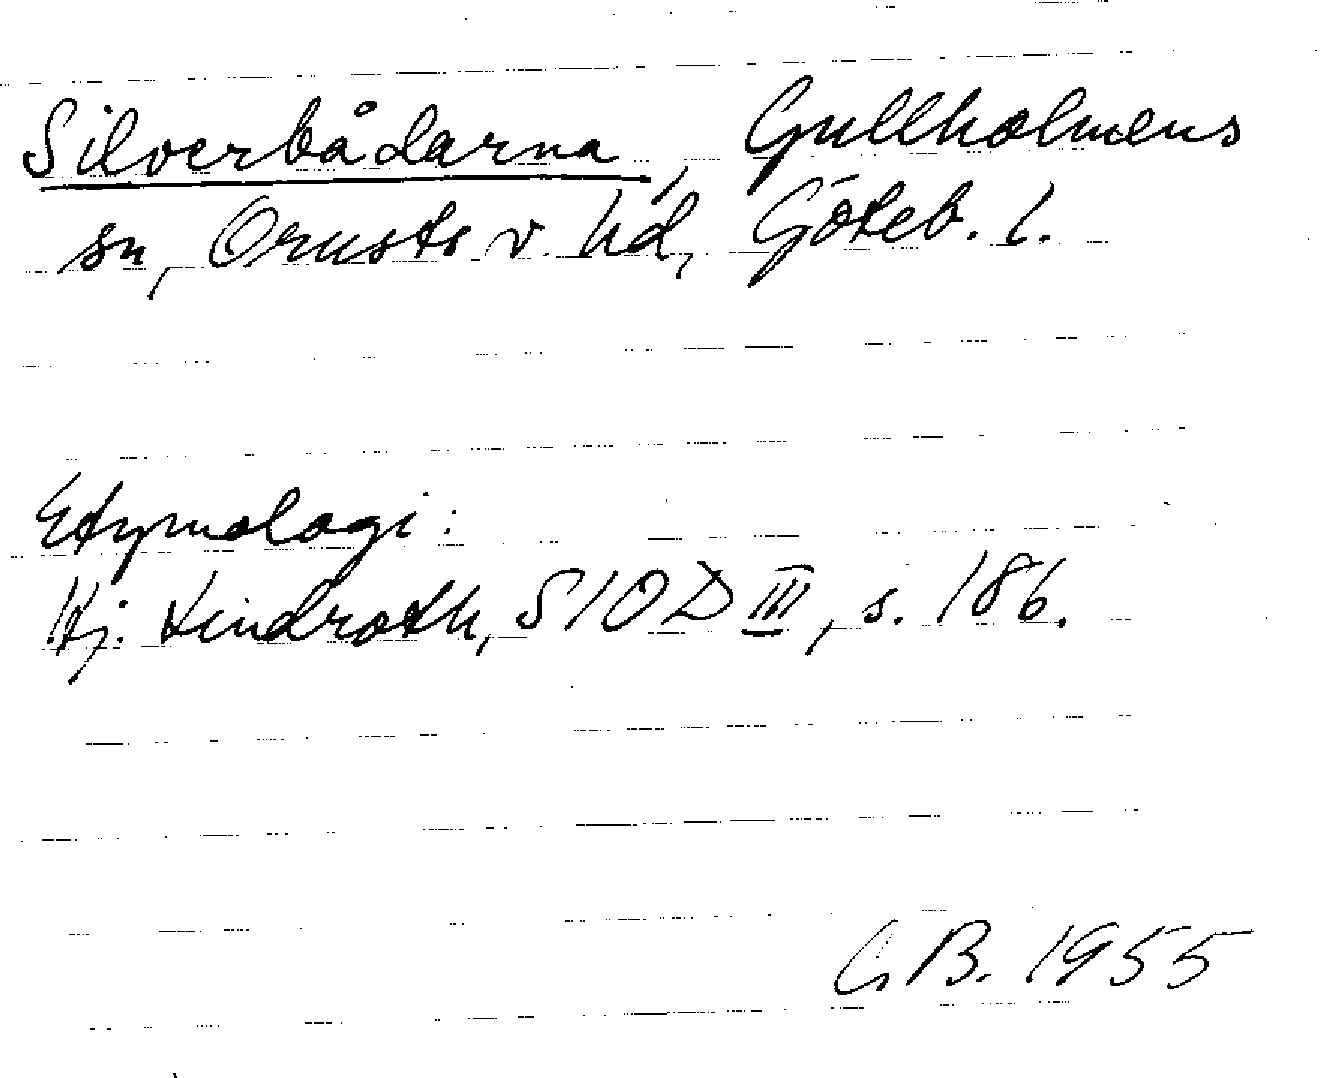 Silverbådarna, Gullholmens
sn, Orusts v. hd, Göteb. l.
Etymologi:
Hj. Lindroth, SIOD III, s. 186.
G B. 1955